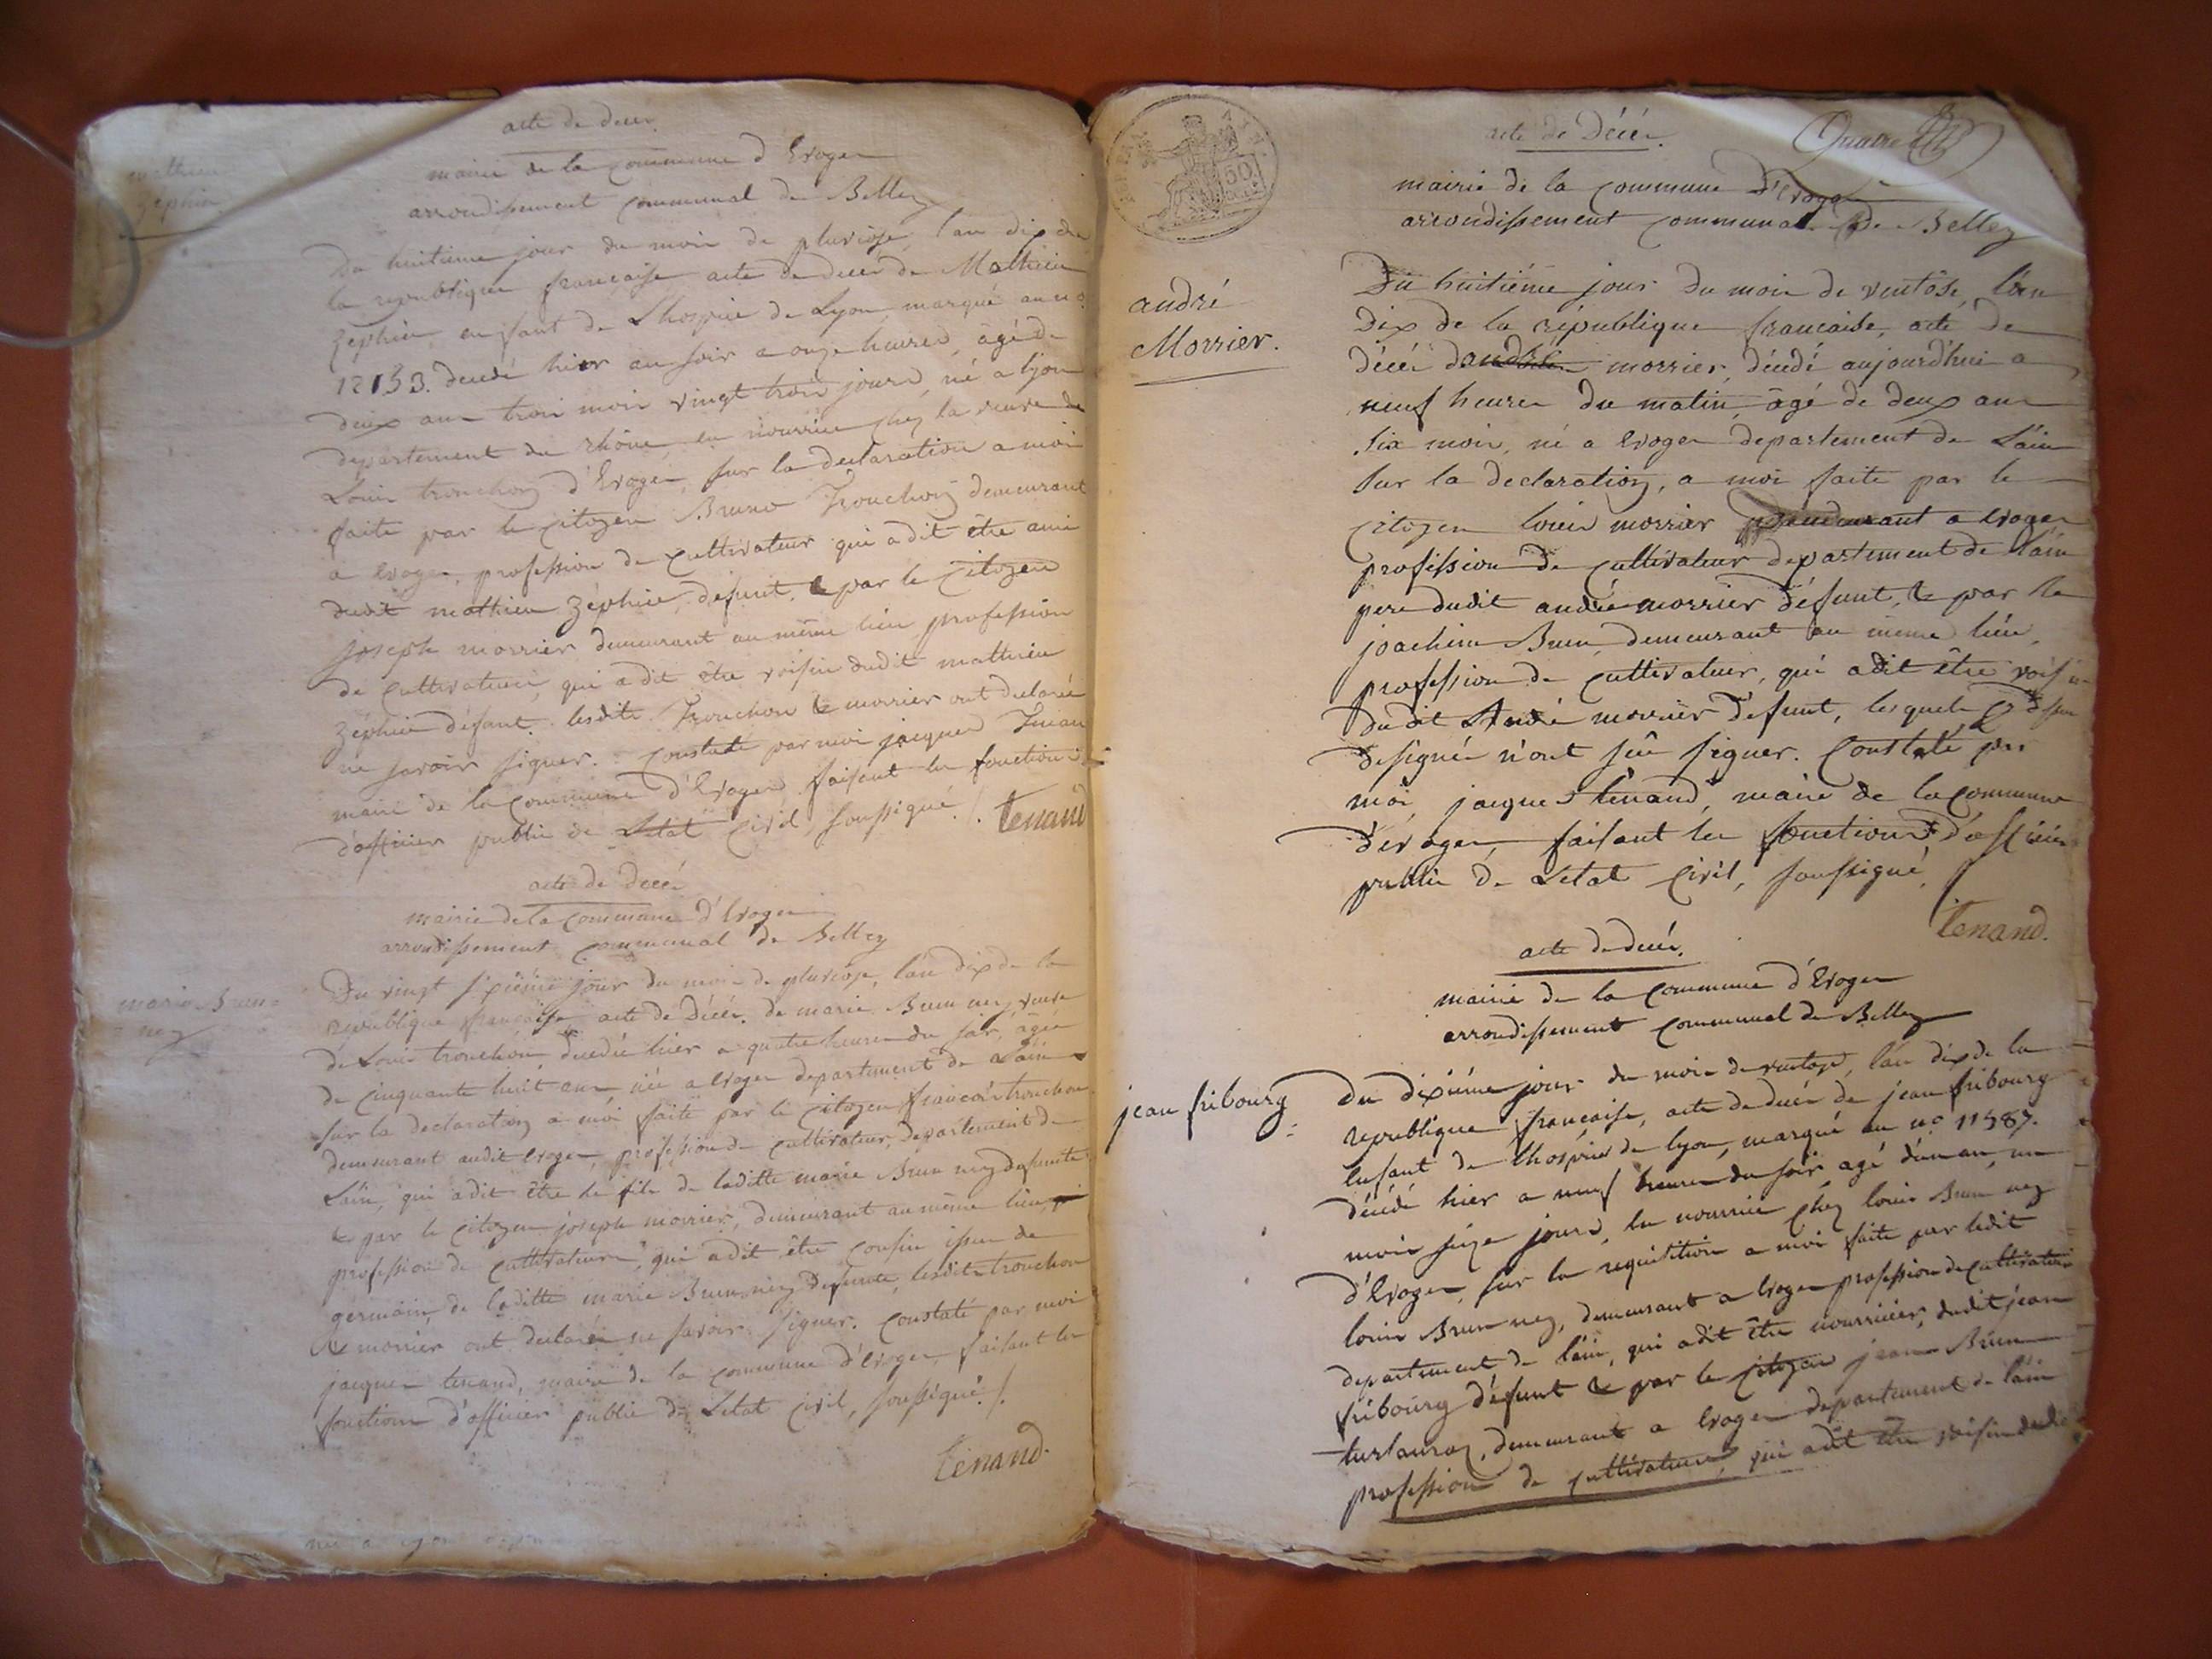 acte de decer
mairie de la commune d'Evoger
arrondissement communal de Belley
mathieu
zephir
Du huitieme jour du mois de pluviose, l'an dix de
la republique francaise acte de decér de Mathieu
Zephir enfant de Lhospice de Lyon marqué au no
12133. decedé hier au soir a onze heures, âgé de
deux ans trois mois vingt trois jours, né a lyon
departement du rhône, en nourrice chez la veuve de
Louis tronchon d'Evoger, sur la declaration a moi
faite par le citoyen Bruno Tronchon demeurant
a Evoger, profession de cultivateur qui a dit être ami
dudit mathieu Zéphir, défunt, & par le citoyen
joseph morrier demeurant au même lieu profession
de cultivateur, qui a dit être voisin dudit mathieu
Zéphir défunt. lesdits Tronchon & morrier ont declarés
ne savoir signer. Constaté par moi jacques Tenan
maire de la commune d'Evoger faisant les fonctions
d'officier public de Letat civil, soussigné /. tenand
acte de decér
mairie de la commune d'Evoger
arrondissement communal de Belley
marie Brun
= nez
Du vingt sixième jour du mois de pluviose, l'an dix de la
republique francaise acte de Décér. de marie Brun nez, veuve
de Louis tronchon decedée hier a quatre heures du soir, âgée
de cinquante huit ans née a Evoger departement de Lain
sur la declaration a moi faite par le citoyen francois tronchon
demeurant audit Evoger, profession de cultivateur, departement de
Lain, qui a dit être le fils de laditte marie Brun nez defunte
& par le citoyen joseph morrier, demeurant au même lieu
profession de cultivateur, qui a dit être cousin issu de
germain, de laditte marie Brun nez defunte, lesdits tronchon
& morrier ont declarés ne savoir signer. Constaté par moi
jacques tenand, maire de la commune d'Evoger, faisant les
fonctions d'officier public de Letat civil, soussigné /.
tenand.
Quatre
acte de Décér.
mairie de la commune d'Evoger
arrondissement communal de Belley
andré
Morrier.
Du huitiéme jour du mois de ventôse, l'an
dix de la république francaise, acte de
décér dandré morrier, décédé aujourd'hui a
neuf heures du matin, âgé de deux ans
six mois, né a Evoger departement de Lain
sur la declaration, a moi faite par le
citoyen louis morrier demeurant a Evoger
profession de cultivateur departement de lain
pere dudit andré morrier défunt, & par le
joachim Brun demeurant au meme lieu,
profession de cultivateur, qui a dit être voisin
dudit André morrier defunt, lesquels
designés n'ont sçû signer. Constaté par
moi, jacques tenand, maire de la commune
d'evoger, faisant les fonctions d'officier
public de Letat civil, soussigné,
tenand.
acte de decér.
mairie de la commune d'Evoger
arrondissement communal de Belley
jean fribourg
Du dixiéme jour du mois de ventose, l'an dix de la
republique française, acte de decér de jean fribourg
enfant de Lhospice de lyon, marqué au no 11587.
décédé hier a neuf heures du soir agé d'un an, un
mois seize jours, en nourrice chez louis Brun nez
d'Evoger, sur la requisition a moi faite par ledit
louis Brun nez, demeurant a Evoger profession de cultivateur
departement de lain, qui a dit être nourricier, dudit jean
fribourg défunt & par le citoyen jean Brun
turlauroz, demeurant a Evoger departement de lain
profession de cultivateur, qui a dit être voisin dudit